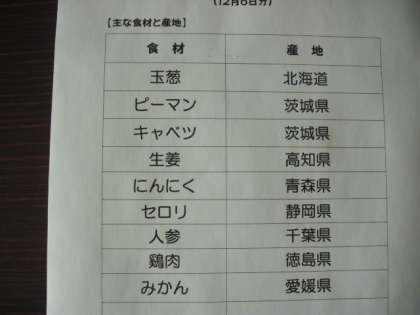 (12月6日分)
【主な食材と産地】
食材 産地
玉葱 北海道
ピーマン 茨城県
キャベツ 茨城県
生姜 高知県
にんにく 青森県
セロリ 静岡県
人参 千葉県
鶏肉 徳島県
みかん 愛媛県